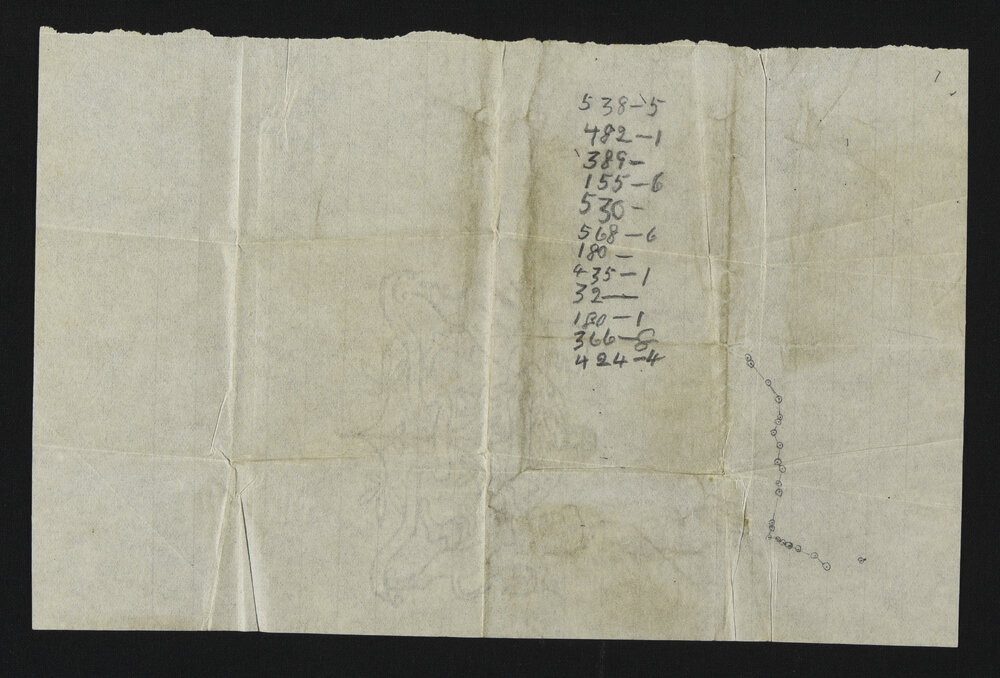 538-5
482-1
389-
155-6
530-
568-6
180-
435-1
32-
180-1
366-8
424-4